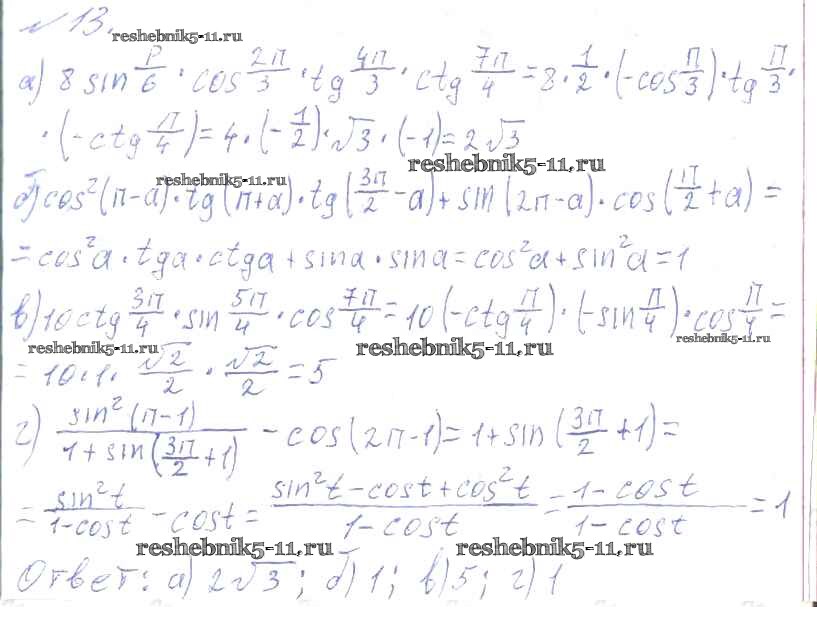 № 13.
reshebnik5-11.ru
а) 8 sin P/6 · cos 2π/3 · tg 4π/3 · ctg 7π/4 = 8 · 1/2 · (-cos π/3) · tg π/3 ·
· (-ctg π/4) = 4 · (-1/2) · √3 · (-1) = 2√3
reshebnik5-11.ru
reshebnik5-11.ru
б) cos²(π-a) · tg(π+a) · tg(3π/2 - a) + sin(2π-a) · cos(π/2 + a) =
= cos²a · tga · ctga + sina · sina = cos²a + sin²a = 1
в) 10 ctg 3π/4 · sin 5π/4 · cos 7π/4 = 10 (-ctg π/4) · (-sin π/4) · cos π/4 =
reshebnik5-11.ru
reshebnik5-11.ru
reshebnik5-11.ru
= 10 · 1 · √2/2 · √2/2 = 5
г) sin²(π-1)/(1+sin(3π/2+1)) - cos(2π-1) = 1+sin(3π/2+1) =
= sin²t/(1-cost) - cost = (sin²t-cost+cos²t)/(1-cost) = (1-cost)/(1-cost) = 1
reshebnik5-11.ru
reshebnik5-11.ru
Ответ: а) 2√3; б) 1; в) 5; г) 1